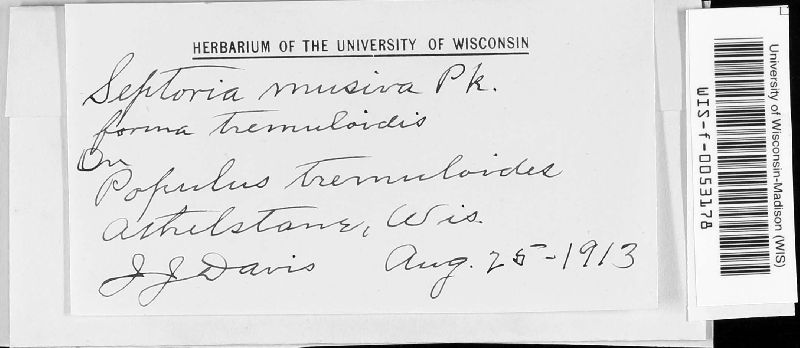 HERBARIUM OF THE UNIVERSITY OF WISCONSIN
Septoria musiva Pk.
forma tremuloidis
On
Populus tremuloides
Athelstane, Wis.
J J Davis Aug. 25-1913
University of Wisconsin-Madison (WIS)
WIS-f-0053178